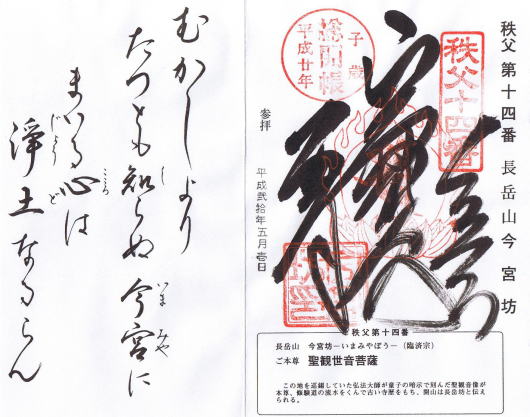 秩父 第十四番 長岳山今宮坊
秩父十四番
子歳
総開帳
平成廿年
参拝 平成弐拾年五月壱日
秩父第十四番
長岳山 今宮坊―いまみやぼう―（臨済宗）
ご本尊 聖観世音菩薩
この地を巡錫していた弘法大師が童子の暗示で刻んだ聖観音像が
本尊、修験道の流水をくんで古い寺歴をもち、開山は長岳坊と伝え
られる。
むかしより
たつとも知らぬ今宮に
まいる心は
淨土なるらん